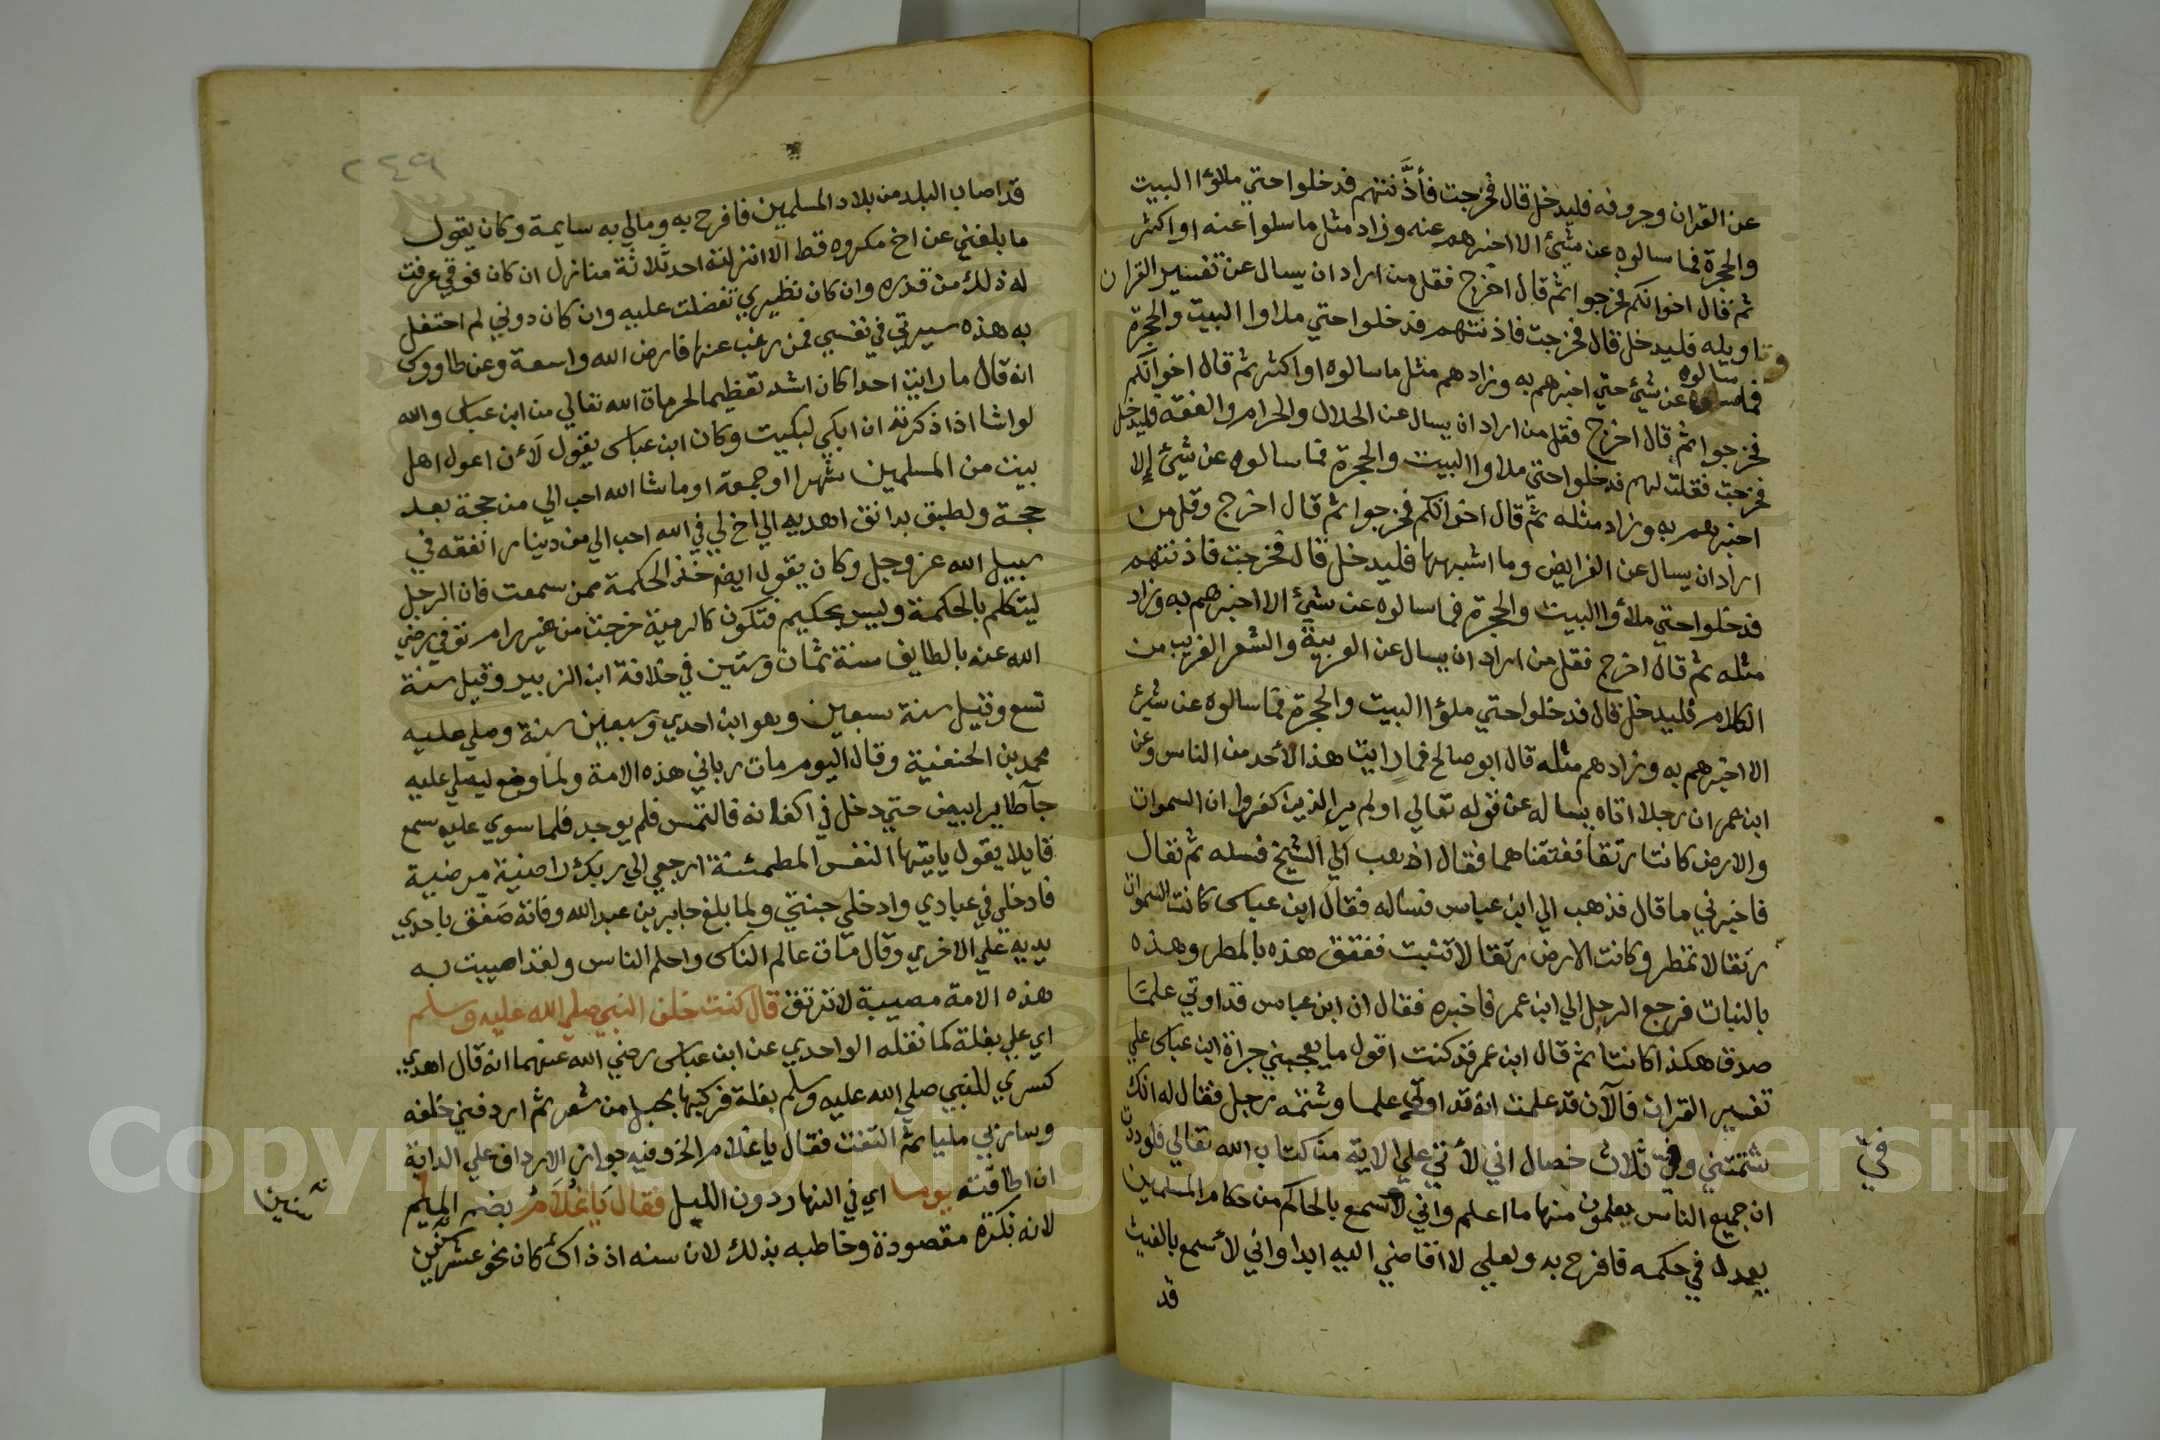 عن القران وحروفه فليدخل قال فخرجت فأذَّنتهم فدخلوا حتي ملاؤا البيت
والحجرة فما سالوه عن شئ الا اخبرهم عنه وزاد مثل ما سلوا عنه او اكثر
ثم قال اخوانكم فخرجوا ثم قال اخرج فقل من اراد ان يسال عن تفسير القران
وتاويله فليدخل قال فخرجت فاذنتهم فدخلوا حتي ملاوا البيت والحجرة
فما سالوه عن شئ حتي اخبرهم به وزادهم مثل ما سالوه او اكثر ثم قال اخوانكم
فخرجوا ثم قال اخرج فقل من اراد ان يسال عن الحلال والحرام والفقه فليدخل
فخرجت فقلت لهم فدخلوا حتي ملاوا البيت والحجرة فما سالوه عن شئ إلا
اخبرهم به وزاد مثله ثم قال اخوانكم فخرجوا ثم قال اخرج وقل من
اراد ان يسال عن الفرايض وما اشبهها فليدخل قال فخرجت فاذنتهم
فدخلوا حتي ملأوا البيت والحجرة فما سالوه عن شئ الا اخبرهم به وزاد
مثله ثم قال اخرج فقل من اراد ان يسال عن العربية والشعر الغريب من
الكلام فليدخل قال فدخلوا حتي ملؤا البيت والحجرة فما سالوه عن شئ
الا اخبرهم به وزادهم مثله قال ابو صالح فما رايت هذا لأحد من الناس وعن
ابن عمر ان رجلا اتاه يساله عن قوله تعالي اولم ير الذين كفروا ان السموات
والارض كانتا رتقا ففتقناهما فقال اذهب الي الشيخ فسله ثم تعال
فاخبرني ما قال فذهب الي ابن عباس فساله فقال ابن عباس كانت السموات
رتقا لا تمطر وكانت الارض رتقا لا تنبت ففتق هذه بالمطر وهذه
بالنبات فرجع الرجل الي ابن عمر فاخبره فقال ان ابن عباس قد اوتي علما
صدق هكذا كانتا ثم قال ابن عمر قد كنت اقول ما يعجبني جراة ابن عباس علي
تفسير القران فالآن قد علمت انه قد اوتي علما وشتمه رجل فقال له انك
شتمتني وفيّ ثلاث خصال اني لأتي علي الاية من كتاب الله تعالي فلوددت
ان جميع الناس يعلمون منها ما اعلم واني لاسمع بالحاكم من حكام المسلمين
يعدل في حكمه فافرح به ولعلي لا اقاضي اليه ابدا واني لأسمع بالغيث
قد
فيّ
٢٤٩
قد اصاب البلد من بلاد المسلمين فافرح به ومالي به سايمة وكان يقول
ما بلغني عن اخ مكروه قط الا انزلته احد ثلاثة منازل ان كان فوقي عرفت
له ذلك من قدره وان كان نظيري تفضلت عليه وان كان دوني لم احتفل
به هذه سيرتي في نفسي فمن رغب عنها فارض الله واسعة وعن طاووس
انه قال ما رايت احدا كان اشد تعظيما لحرمات الله تعالي من ابن عباس والله
لو اشا اذا ذكرته ان ابكي لبكيت وكان ابن عباس يقول لَأن اعول اهل
بيت من المسلمين شهرا او جمعة او ماشا الله احب الي من حجة بعد
حجة ولطبق بدانق اهديه الي اخ لي في الله احب الي من دينار انفقه في
سبيل الله عز وجل وكان يقول ايضا خذ الحكمة ممن سمعت فان الرجل
ليتكلم بالحكمة وليس بحكيم فتكون كالرمية خرجت من غير رام توفي رضي
الله عنه بالطايف سنة ثمان وستين في خلافة ابن الزبير وقيل سنة
تسع وقيل سنة سبعين وهو ابن احدي وسبعين سنة وصلي عليه
محمد بن الحنفية وقال اليوم مات رباني هذه الامة ولما وضع ليصلي عليه
جآ طاير ابيض حتي دخل في اكفانه فالتمس فلم يوجد فلما سوي عليه سمع
قايلا يقول يايتها النفس المطمئنة ارجعي الي ربك راضية مرضية
فادخلي في عبادي وادخلي جنتي ولما بلغ جابر بن عبد الله وفاته صَفَق باحدي
يديه علي الاخري وقال مات عالم الناس واحلم الناس ولقد اصيبت به
هذه الامة مصيبة لا ترتق قال كنت خلف النبي صلي الله عليه وسلم
اي علي بغلة كما نقله الواحدي عن ابن عباس رضي الله عنهما انه قال اهدي
كسري للنبي صلي الله عليه وسلم بغلة فركبها بحبل من شعر ثم اردفني خلفه
وسار بي مليا ثم التفت فقال يا غلام الخ وفيه جواز الارداف علي الدابة
ان اطاقته يوما اي في النهار دون الليل فقال يَا غُلَامُ بضم الميم
لانه نكرة مقصودة وخاطبه بذلك لان سنه اذ ذاك كان نحو عشر سنين
سنين
Copyright © King Saud University